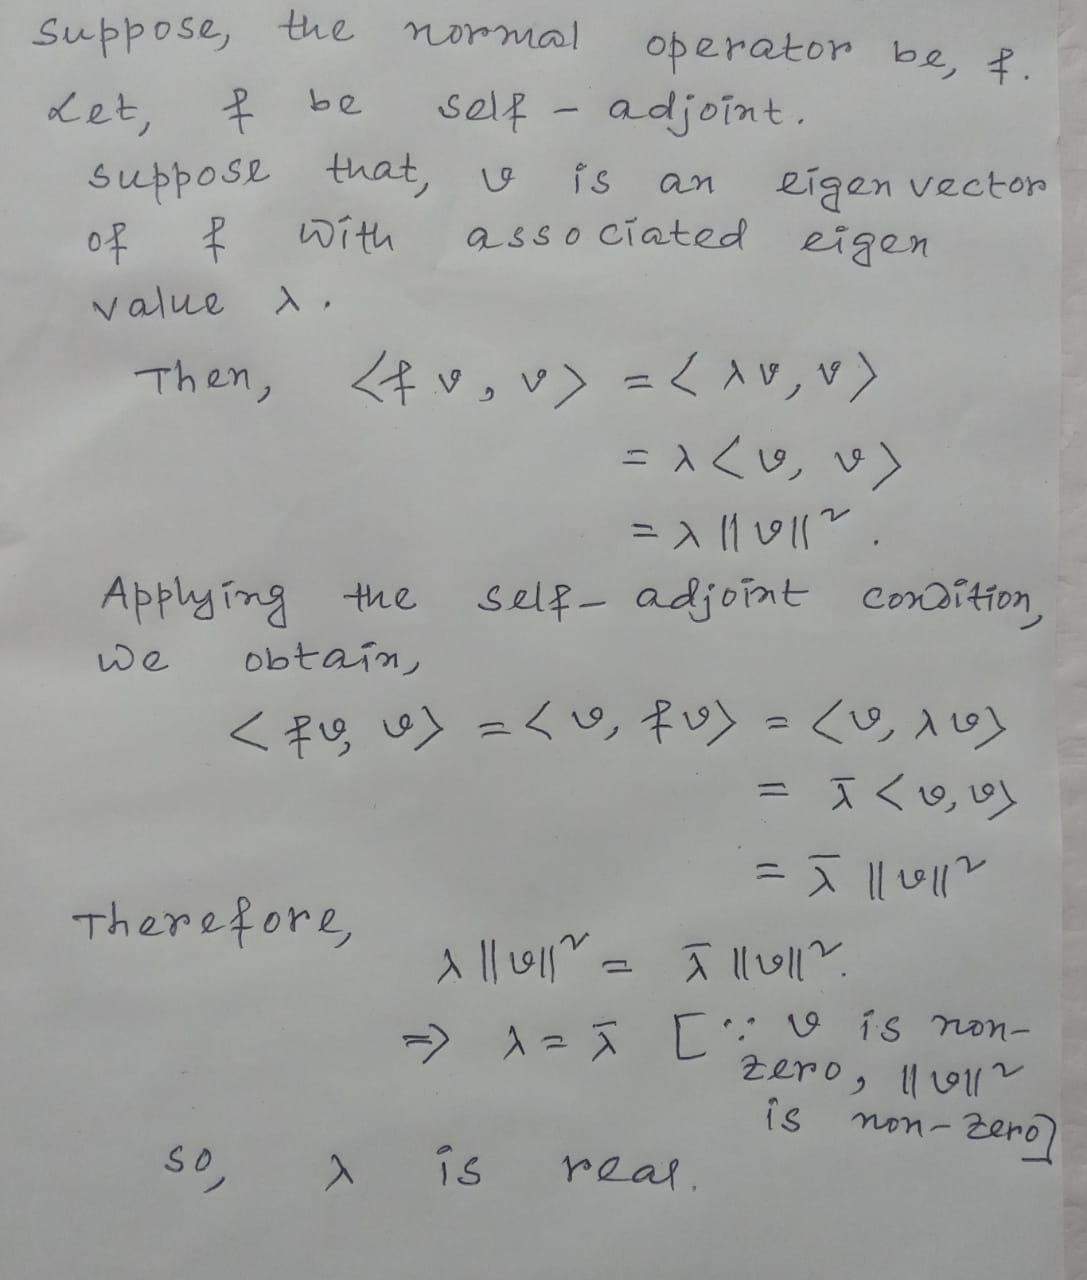 suppose, the normal operator be, f.
Let, f be self-adjoint.
suppose that, v is an eigen vector
of f with associated eigen
value λ.
Then, <f v, v> = < λv, v>
= λ<v, v>
= λ||v||².
Applying the self-adjoint condition,
we obtain,
< fv, v> = <v, fv> = <v, λv>
= λ̄ <v, v>
= λ̄ ||v||²
Therefore,
λ||v||² = λ̄ ||v||².
⇒ λ = λ̄ [∵ v is non-
zero, ||v||²
is non-zero]
so, λ is real.